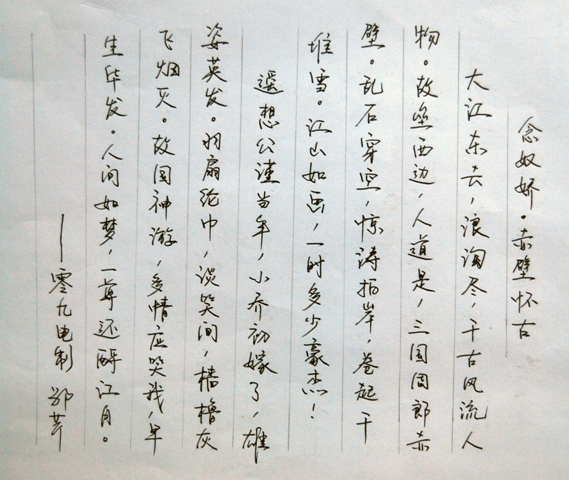 念奴娇·赤壁怀古
大江东去,浪淘尽,千古风流人
物。故垒西边,人道是,三国周郎赤
壁。乱石穿空,惊涛拍岸,卷起千
堆雪。江山如画,一时多少豪杰!
遥想公瑾当年,小乔初嫁了,雄
姿英发。羽扇纶巾,谈笑间,樯橹灰
飞烟灭。故国神游,多情应笑我,早
生华发。人间如梦,一尊还酹江月。
——零九电制 邹芹